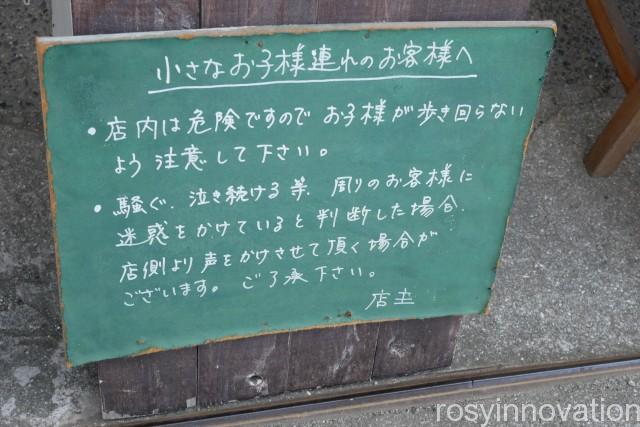 小さなお子様連れのお客様へ
• 店内は危険ですので お子様が歩き回らない
よう注意して下さい。
• 騒ぐ、泣き続ける等、周りのお客様に
迷惑をかけていると判断した場合、
店側より声をかけさせて頂く場合が
ございます。 ご了承下さい。
店主
rosyinnovation